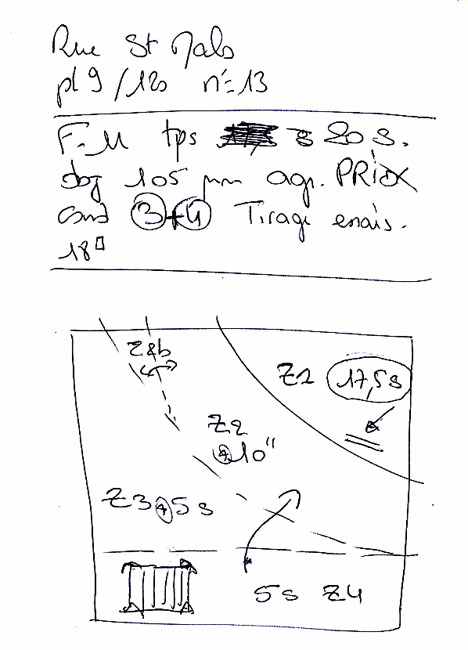 Rue St Malo
pl 9 /120 n°=13
F-M tps = 20 s.
obj 105 mm agr. PRIOX
cond 3+4 Tirage
18°
Z2b
Z1 17,5s
Z2
+10"
Z3+5s
5s Z4